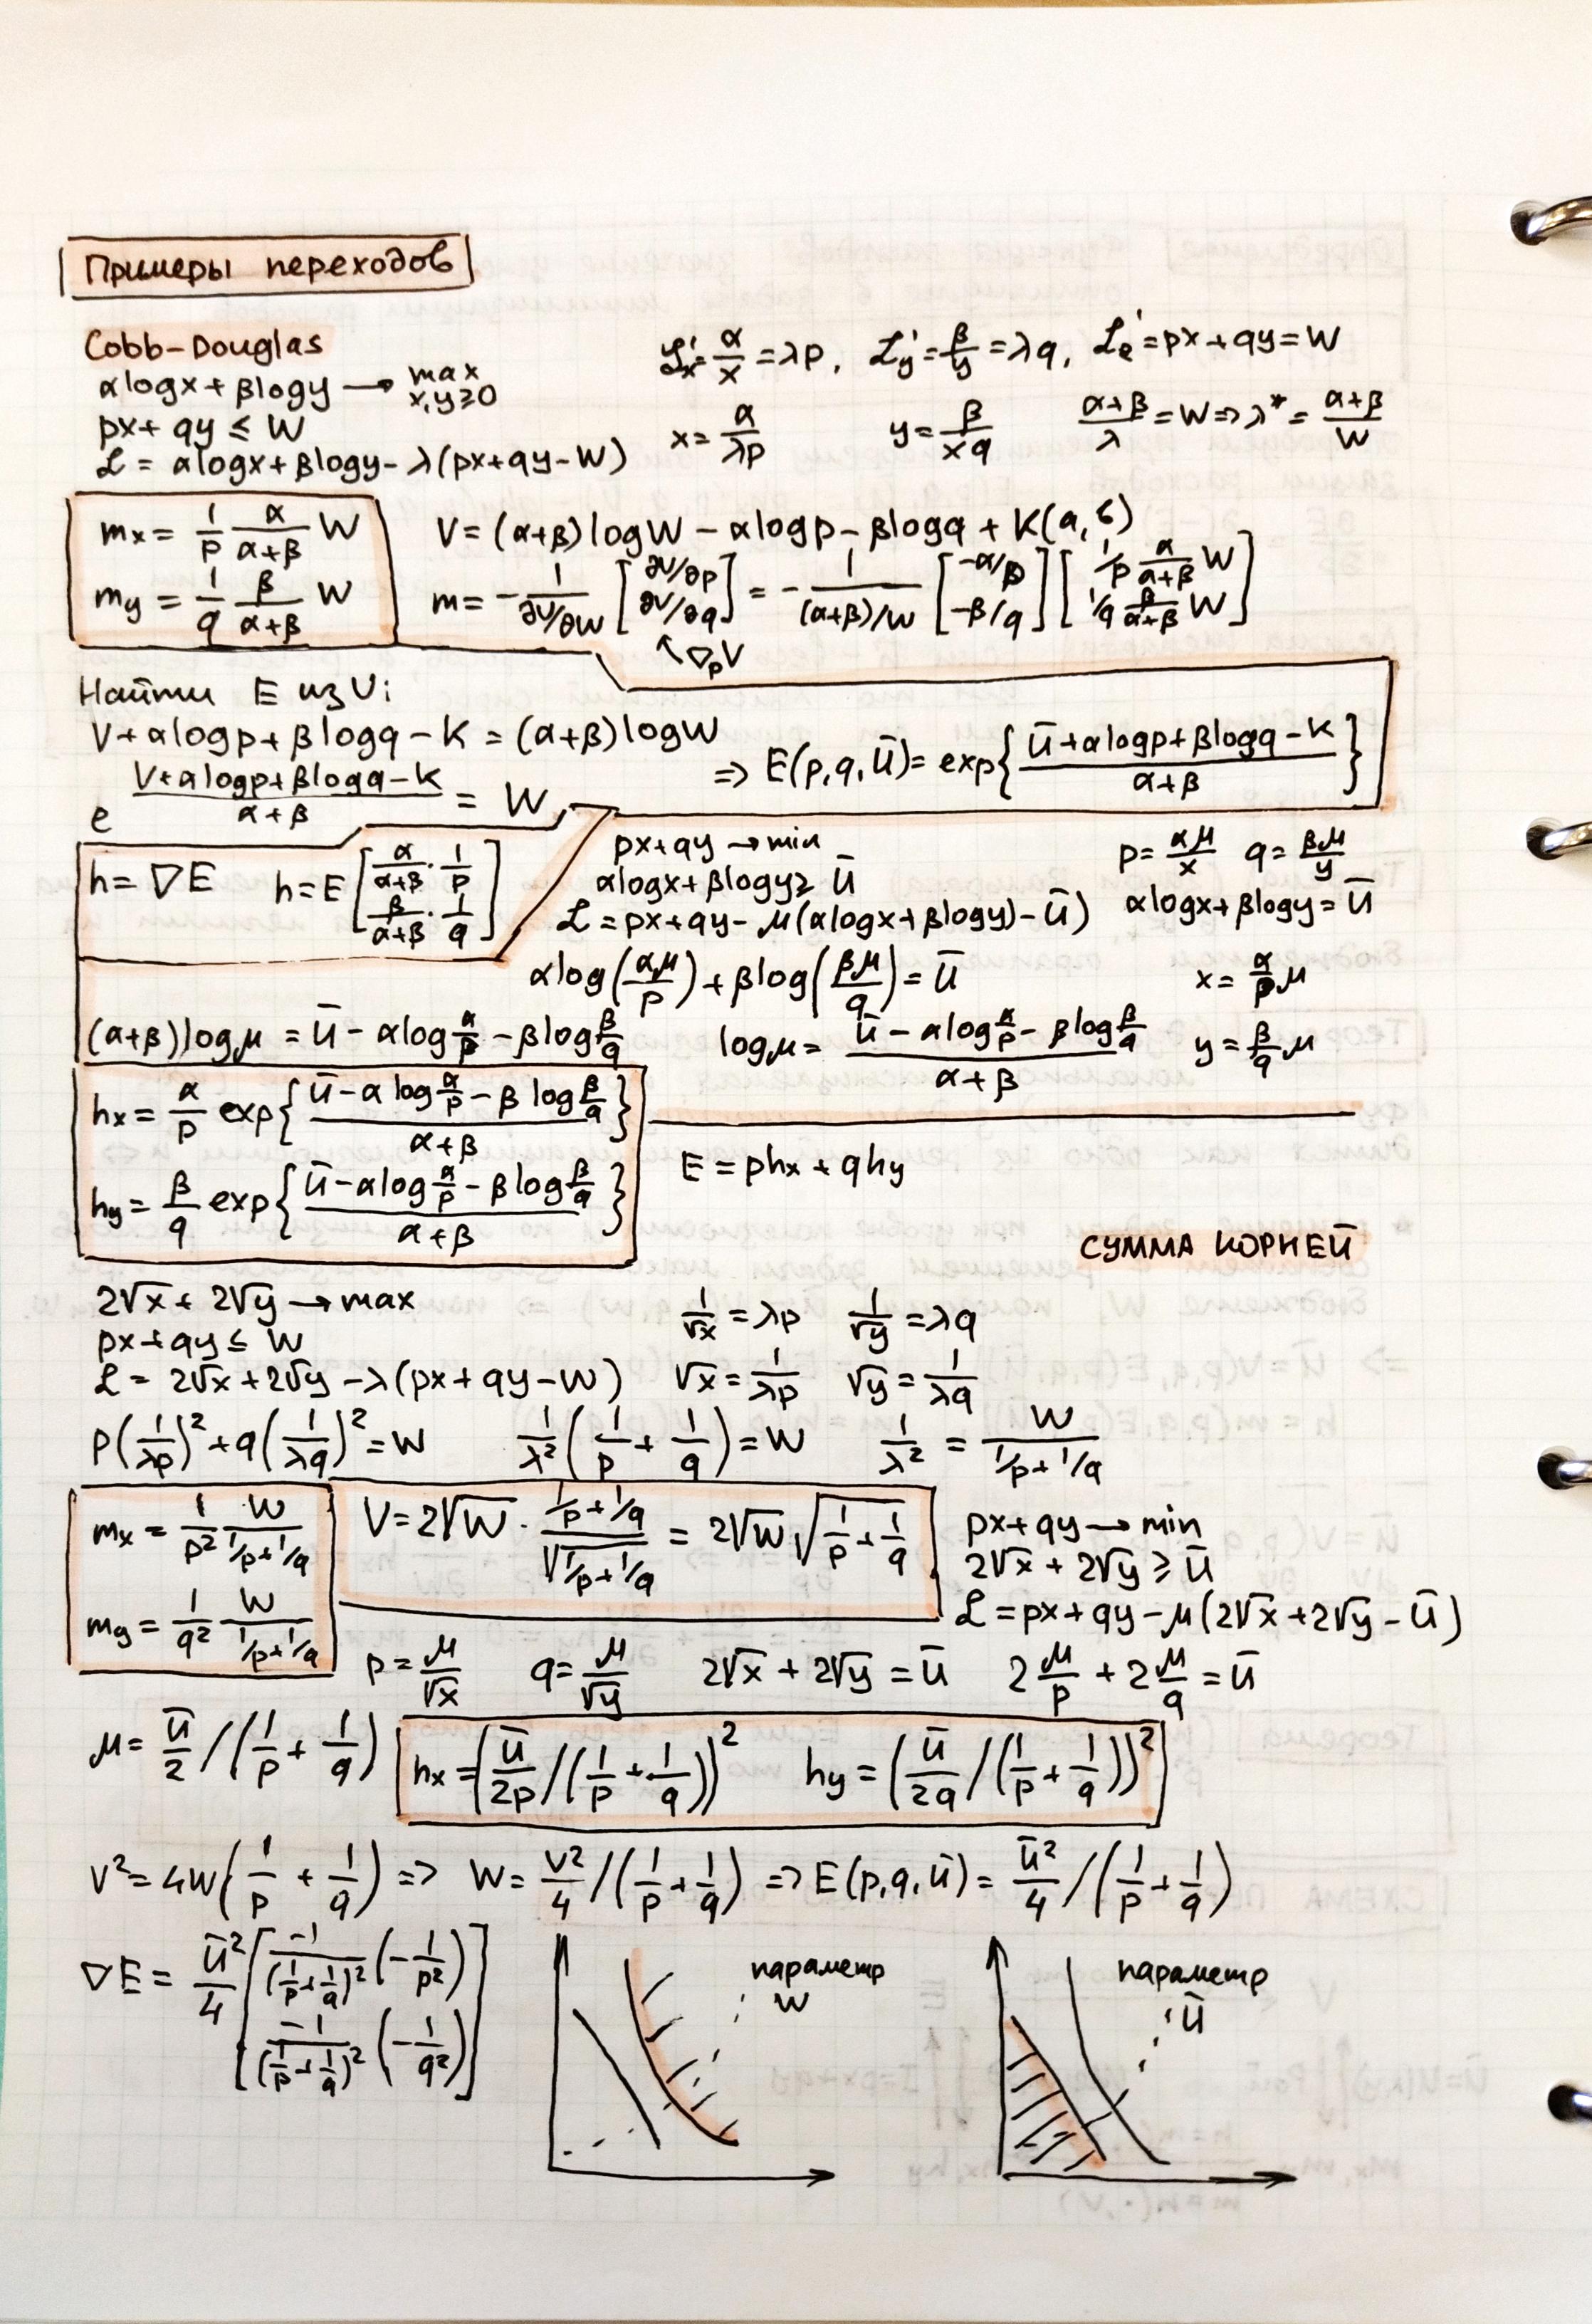 Примеры переходов
Cobb-Douglas
αlogx + βlogy → max x,y≥0
px + qy ≤ W
ℒ = αlogx + βlogy - λ(px+qy-W)
ℒ'x = α/x = λp, ℒ'y = β/y = λq, ℒ'e = px+qy = W
x = α/λp y = β/xq (α+β)/λ = W => λ* = (α+β)/W
mx = 1/p α/(α+β) W
my = 1/q β/(α+β) W
V = (α+β)logW - αlogp - βlogq + K(a,б)
m = - 1/(∂V/∂W) [∂V/∂p ∂V/∂q] = - 1/((α+β)/W) [-α/p -β/q] [1/p α/(α+β) W 1/q β/(α+β) W]
↖∇pV
Найти E из V:
V + αlogp + βlogq - K = (α+β)logW
e^((V+αlogp+βlogq-K)/(α+β)) = W
=> E(p,q,ū) = exp{(ū+αlogp+βlogq-K)/(α+β)}
h = ∇E h = E[α/(α+β)·1/p β/(α+β)·1/q]
px+qy → min
αlogx + βlogy ≥ ū
ℒ = px+qy - μ(αlogx+βlogy) - ū)
p = αμ/x q = βμ/y
αlogx + βlogy = ū
αlog(αμ/p) + βlog(βμ/q) = ū
x = α/p μ
(α+β)logμ = ū - αlog α/p - βlog β/q
logμ = (ū - αlog α/p - βlog β/q)/(α+β)
y = β/q μ
hx = α/p exp{(ū - αlog α/p - βlog β/q)/(α+β)}
hy = β/q exp{(ū - αlog α/p - βlog β/q)/(α+β)}
E = phx + qhy
СУММА КОРНЕЙ
2√x + 2√y → max
px + qy ≤ W
ℒ = 2√x + 2√y - λ(px+qy-W)
1/√x = λp 1/√y = λq
√x = 1/λp √y = 1/λq
p(1/λp)² + q(1/λq)² = W 1/λ² (1/p + 1/q) = W 1/λ² = W/(1/p+1/q)
mx = 1/p² W/(1/p+1/q)
my = 1/q² W/(1/p+1/q)
V = 2√W · (1/p+1/q)/√(1/p+1/q) = 2√W √(1/p+1/q)
px+qy → min
2√x + 2√y ≥ ū
ℒ = px+qy - μ(2√x+2√y - ū)
p = μ/√x q = μ/√y 2√x + 2√y = ū 2 μ/p + 2 μ/q = ū
μ = ū/2 /(1/p + 1/q)
hx = (ū/2p /(1/p + 1/q))² hy = (ū/2q /(1/p + 1/q))²
V² = 4W(1/p + 1/q) => W = V²/4 /(1/p + 1/q) => E(p,q,ū) = ū²/4 /(1/p + 1/q)
∇E = ū²/4 [-1/(1/p+1/q)² (-1/p²) -1/(1/p+1/q)² (-1/q²)]
параметр
W
параметр
ū